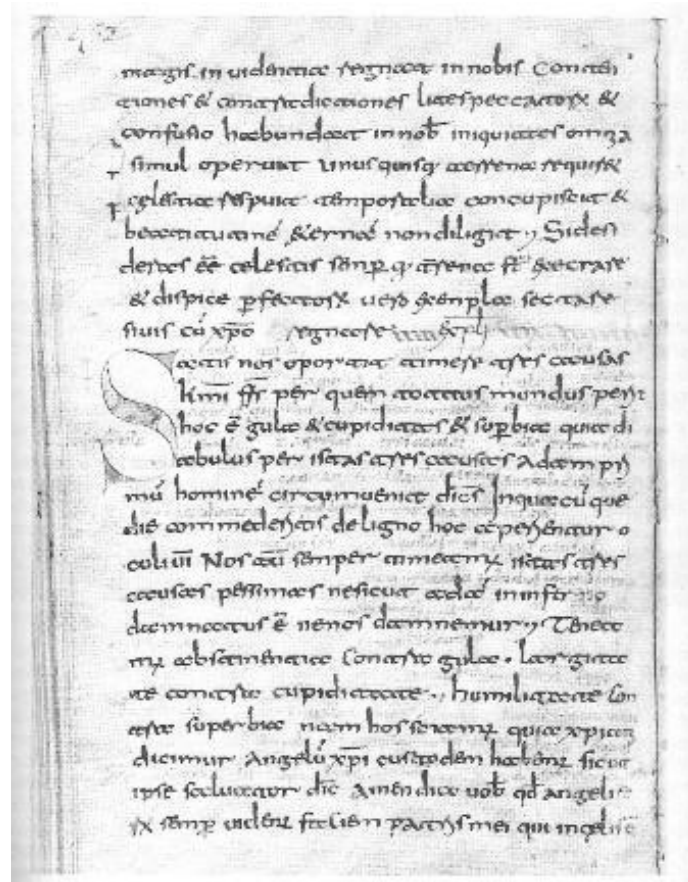 magis in uidentia regnat in nobis Conten
tiones & contradictiones lites peccatorum &
confusio habundat in nob iniquitates omnia
simul operunt Unus quisq terrena requir&
celestia respuit temporalia concupiscit &
beatitutine &erna non diligit ; Si desi
deras ee celestis semp q terrena st execrare
& dispice perfectorum uero exempla sectare
si uis cu xpo regnare
Satis nos oportet timere tres causas
kmi frs per quem totus mundus perit
hoc e gula & cupiditas & superbia quia di
abulus per istas tres causas Adam pri
mu homine circumuenit dics In qua cu que
die commederitis de ligno hoc aperientur o
culi uri Nos aut semper timeamus istas tres
causas pessimas ne sicut ada in inferno
damnatus e ne nos damnemur ; Tenea
mus abstinentia Contra gula . largita
te contra cupiditate ., humilitate Con
tra superbia nam hos sciamus quia xpiani
dicimur Angelu xpi custodem habemus sicut
ipse saluator dic Amen dico uob qd angeli eo
rum semp uident faciem patris mei qui in celis e